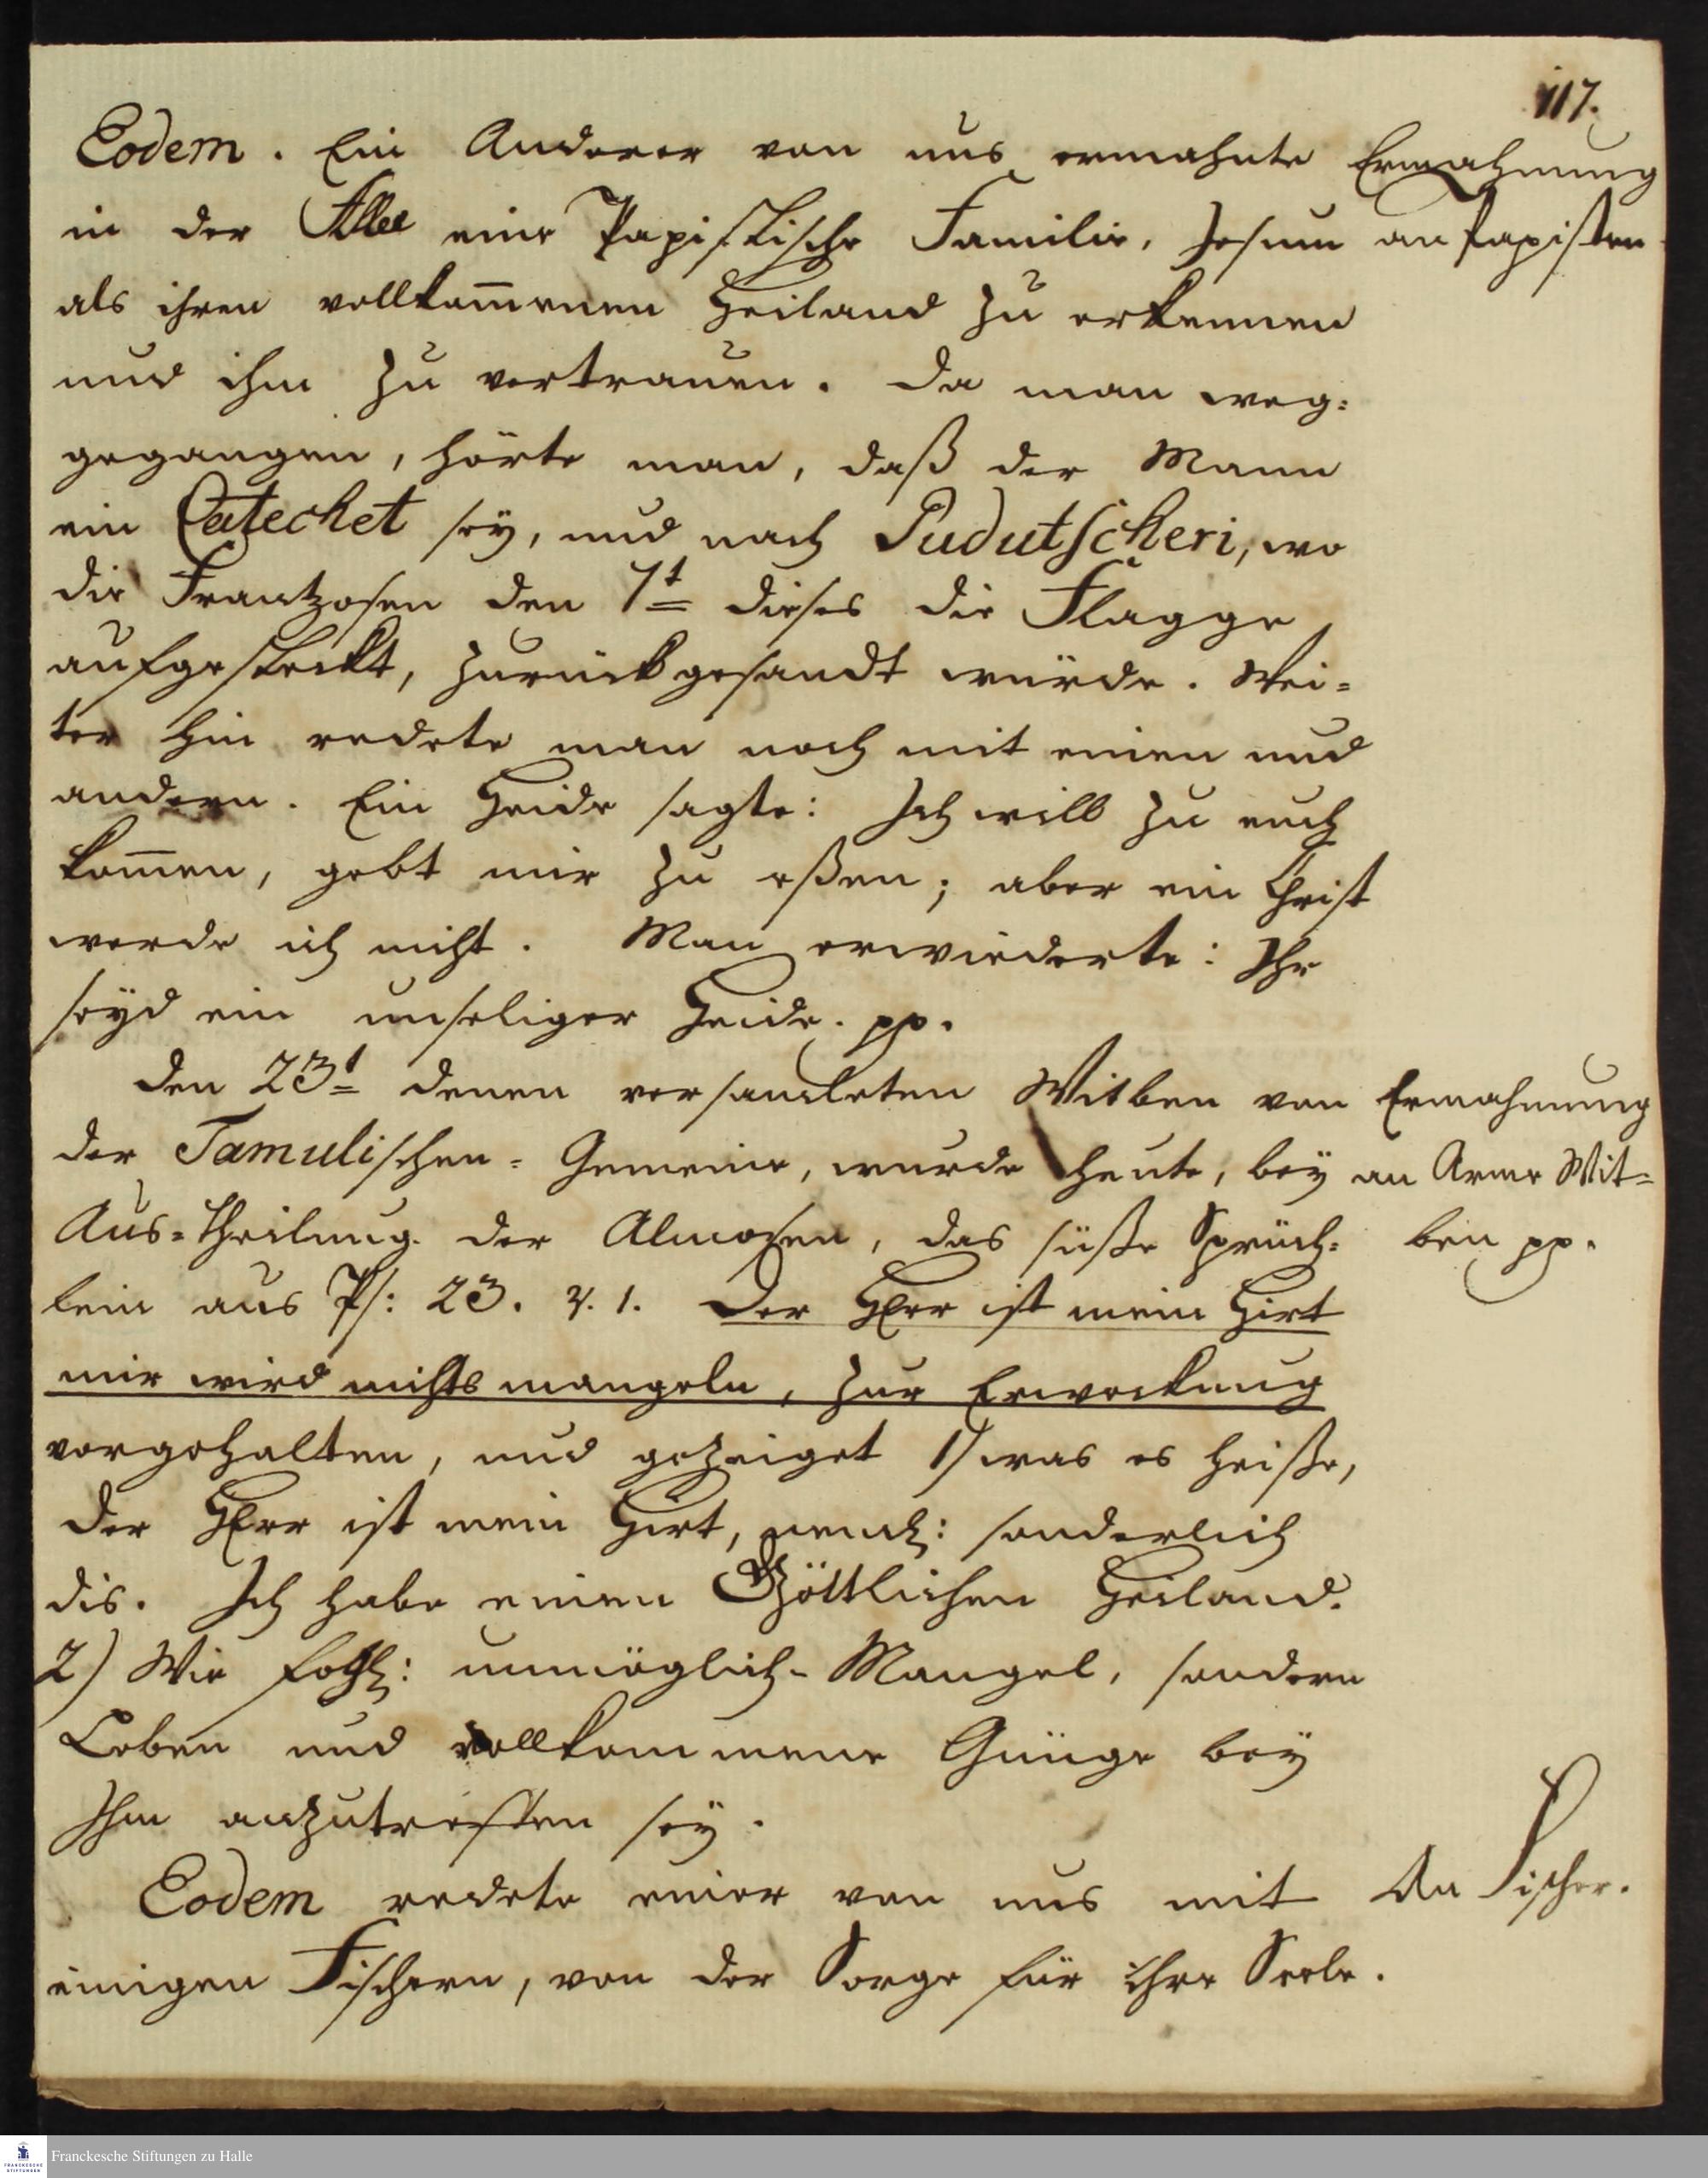 117.
Eodem. Ein Anderer von uns ermahnte
Ermahnung
in der Allee eine Papistische Familie, Jesum
an Papisten
als ihren vollkom̄enen Heiland zu erkennen
und ihm zu vertrauen. Da man weg=
gegangen, hörte man, daß der Mann
ein Catechet sey, und nach Pudutscheri, wo
die Frantzosen den 7t dieses die Flagge
aufgesteckt, zurückgesandt würde. Wei=
ter hin redete man noch mit einen und
andern. Ein Heide sagte: Ich will zu euch
kom̄en, gebt mir zu eßen; aber ein Christ
werde ich nicht. Man erwiederte: Ihr
seyd ein unseliger Heide. pp.
Den 23t denen versamleten Witben von
Ermahnung
der Tamulischen=Gemeine, wurde heute, bey
an Arme Wit=
Aus=theilung der Almosen, das süße Sprüch=
ben pp.
lein aus Ps: 23. v. 1. Der HErr ist mein Hirt
mir wird nichts mangeln, zur Erweckung
vorgehalten, und gezeiget 1) was es heiße,
der HErr ist mein Hirt, neml: sonderlich
dis. Ich habe einen Göttlichen Heiland.
2) Wie folgl: unmöglich=Mangel, sondern
Leben und vollkommene Gnüge bey
Ihm anzutreffen sey.
Eodem redete einer von uns mit
An Fischer.
einigen Fischern, von der Sorge für ihre Seele.
Franckesche Stiftungen zu Halle
FRANCKESCHE
STIFTUNGEN